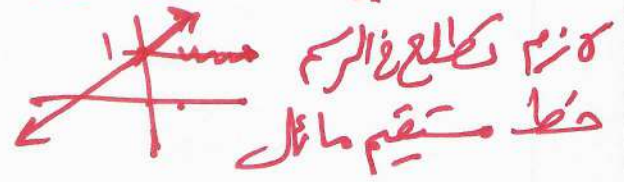 لازم تطلع في الرسم
خط مستقيم مائل
1